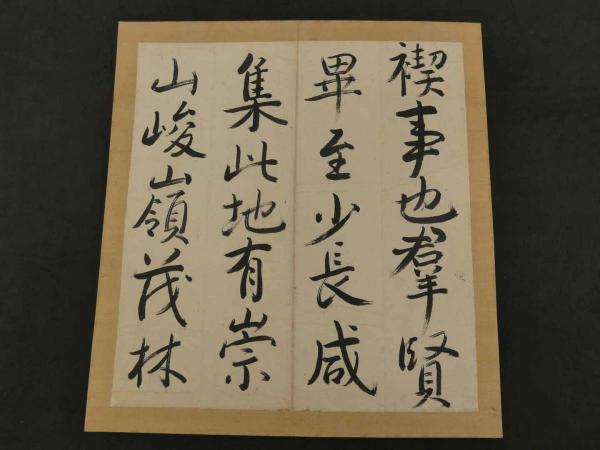 禊事也羣賢
畢至少長咸
集此地有崇
山峻嶺茂林